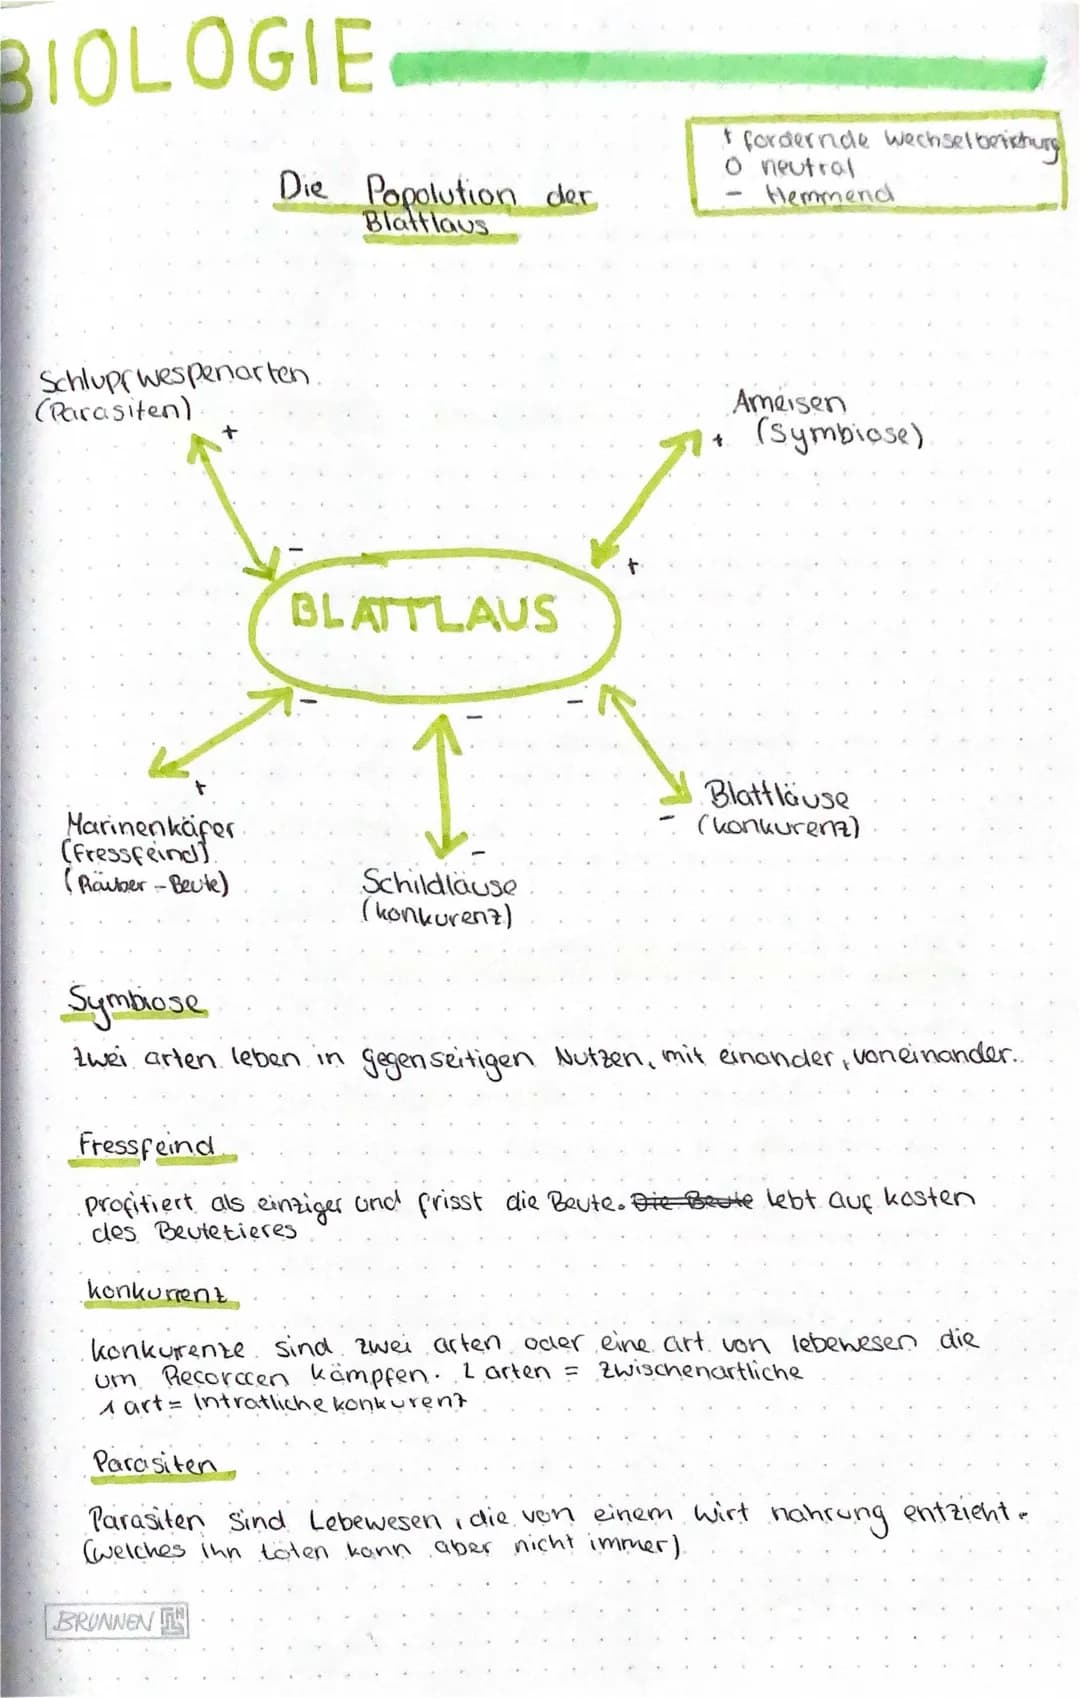 BIOLOGIE
+ fordernde Wechselbeziehung
O neutral
- Hemmend
Die Popolution der
Blattlaus
Schlupfwespenarten
(Parasiten)
+
Ameisen
+ (Symbiose)
-
+
BLATTLAUS
-
-
-
+
Blattläuse
- (konkurenz)
Marinenkäfer
(Fressfeind)
(Räuber - Beute)
-
Schildläuse
(konkurenz)
Symbiose
Zwei arten leben in gegenseitigen Nutzen, mit einander, voneinander.
Fressfeind
Profitiert als einziger und frisst die Beute. Die Beute lebt auf kosten
des Beutetieres
konkurrenz
konkurenze sind zwei arten oder eine art von lebewesen die
um Recorccen kämpfen. 2 arten = Zwischenartliche
1 art = Intratliche konkurenz
Parasiten
Parasiten sind Lebewesen, die von einem Wirt nahrung entzieht.
(welches ihn töten kann aber nicht immer)
BRUNNEN